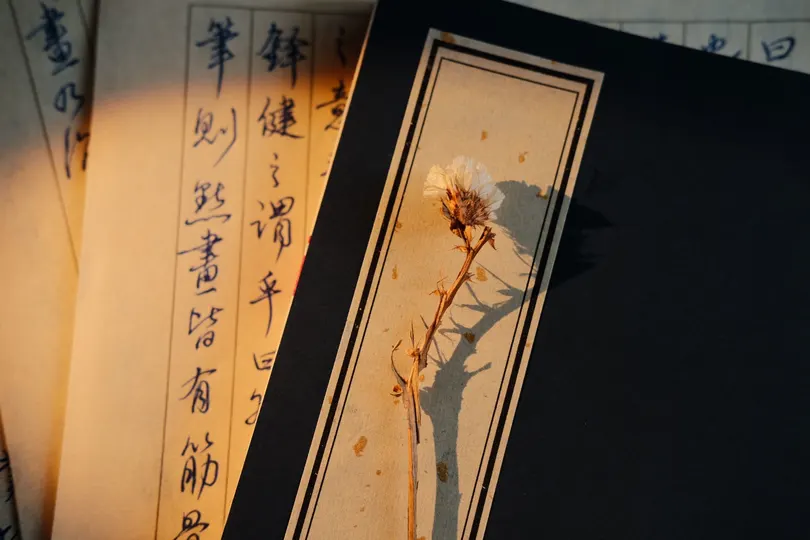 曰
之意
鋒健之謂乎曰
筆則點畫皆有筋骨
畫